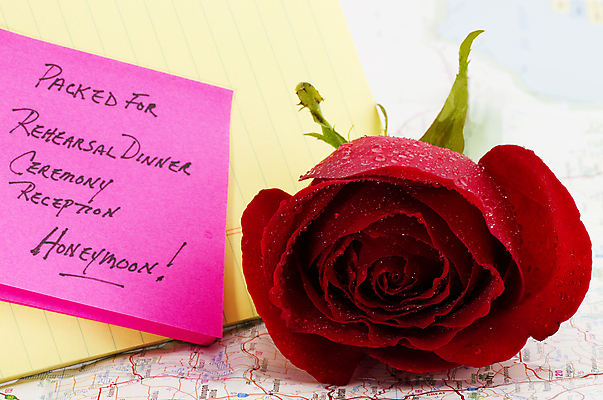 Packed For
Rehearsal Dinner
Ceremony
Reception
Honeymoon!